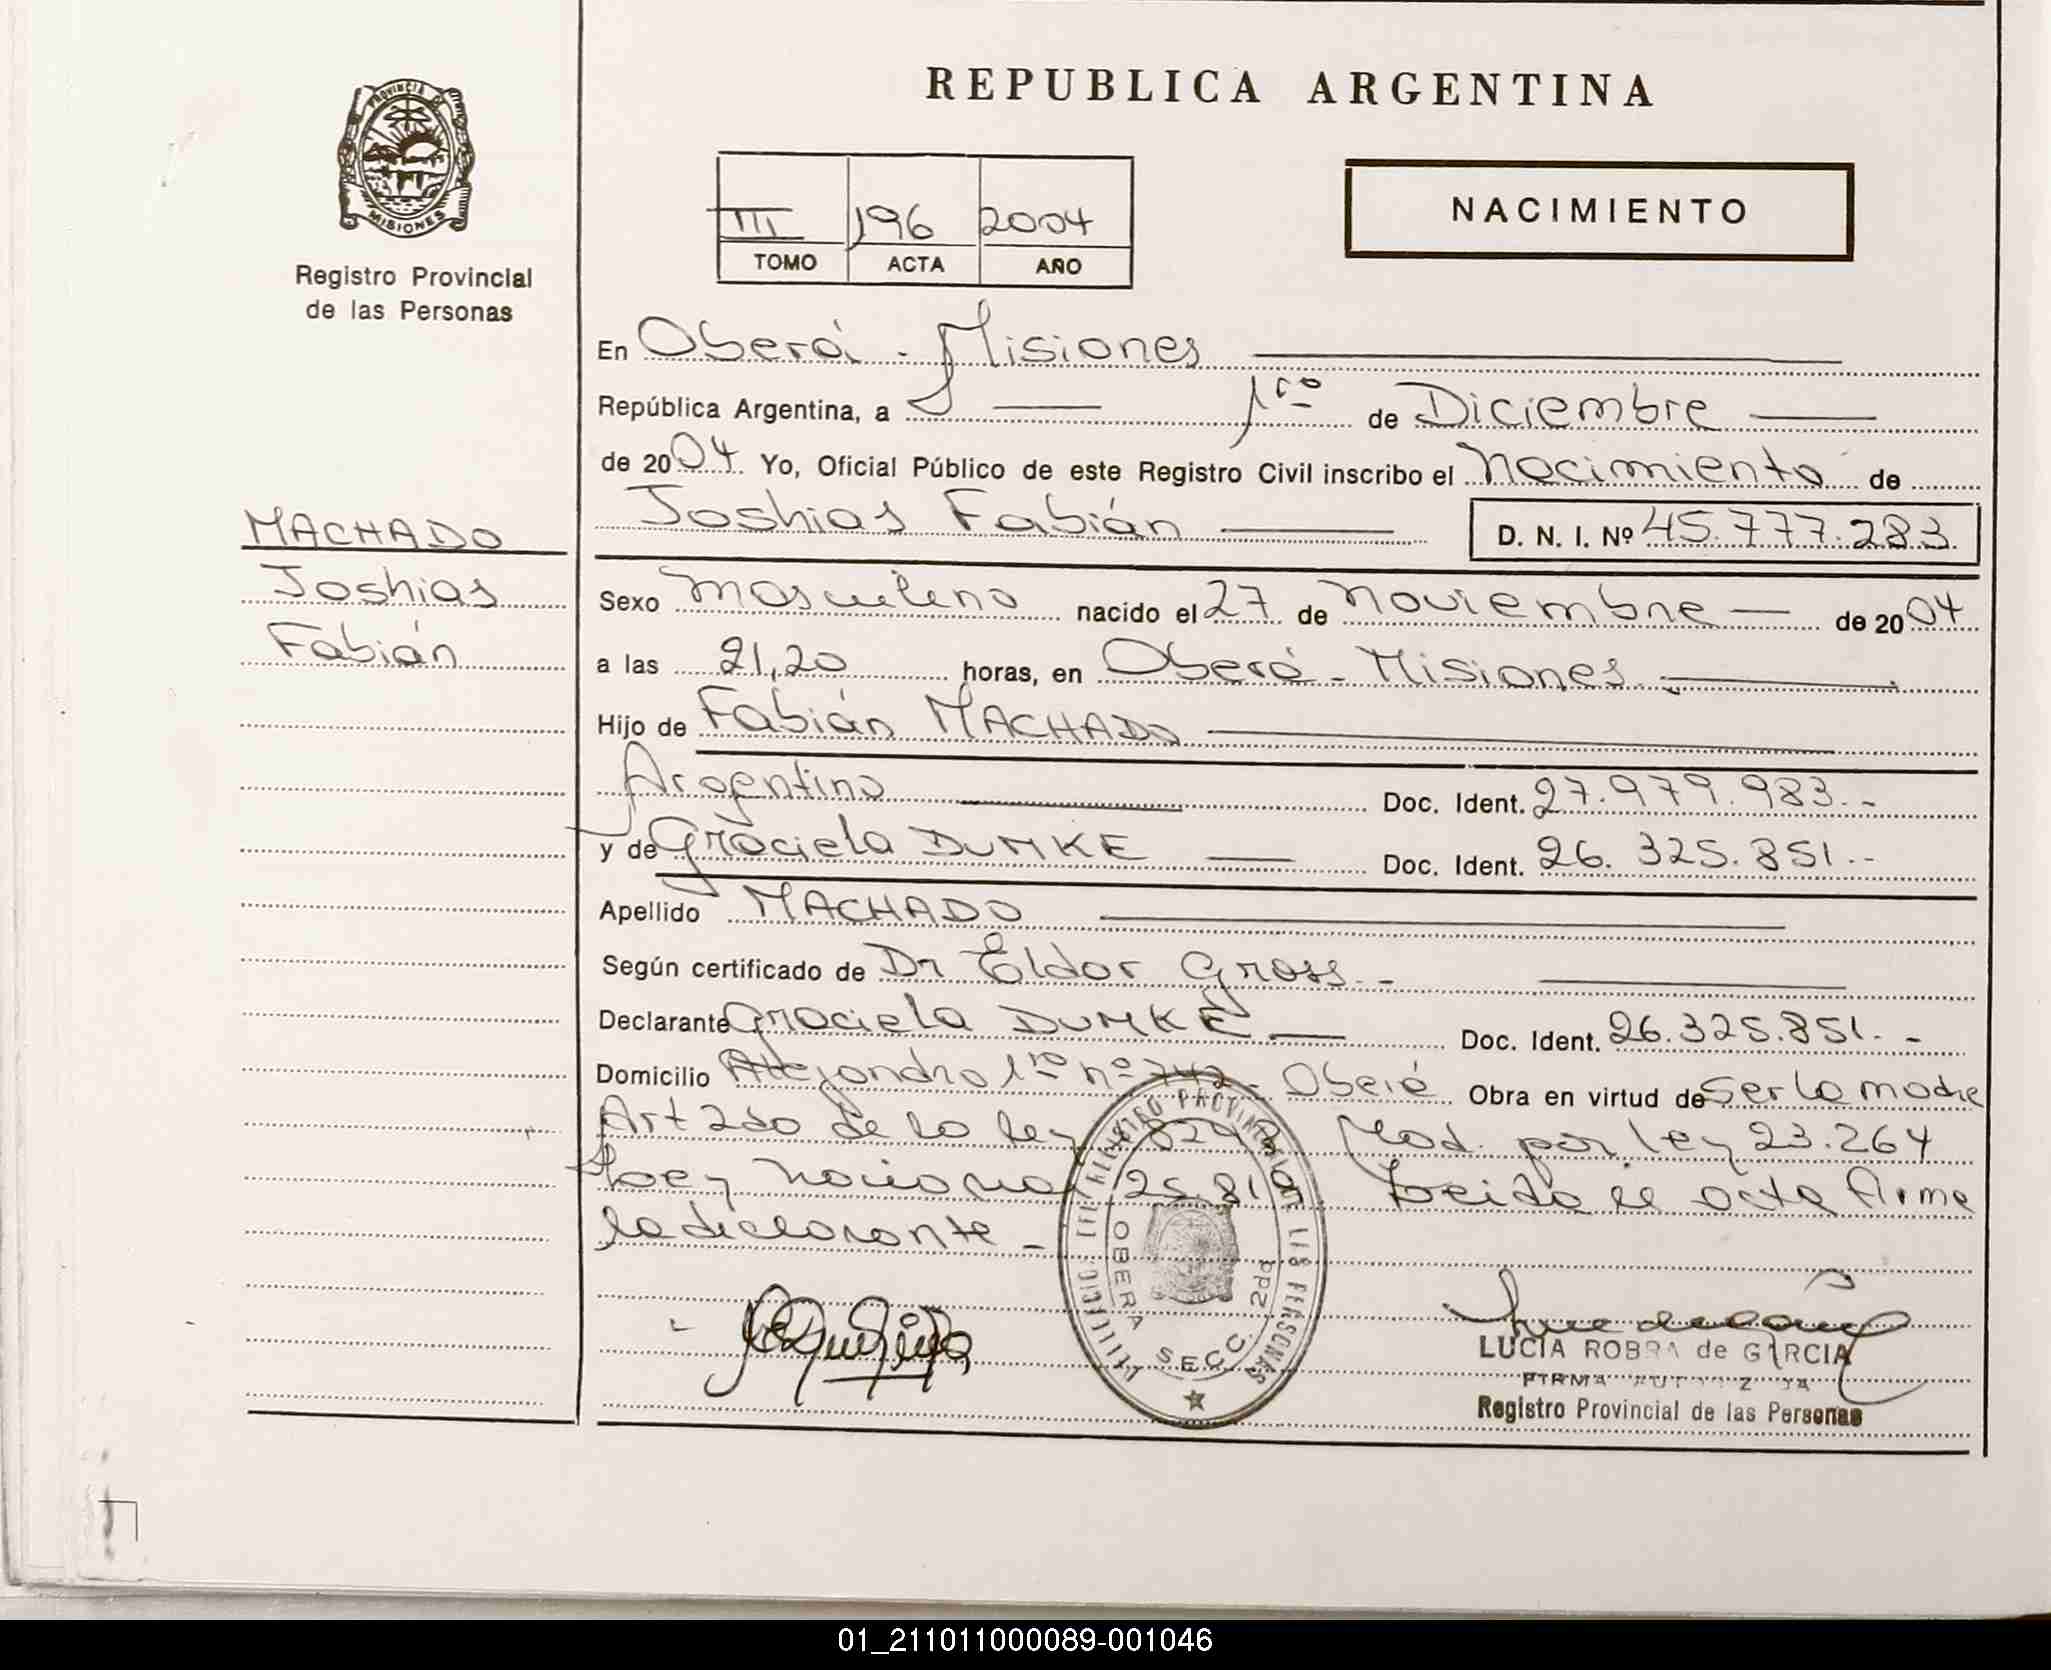 REPUBLICA ARGENTINA
PROVINCIA DE
MISIONES
Registro Provincial
de las Personas
III 196 2004
TOMO ACTA AÑO
NACIMIENTO
En Oberá - Misiones
República Argentina, a 1ro de Diciembre
de 2004 Yo, Oficial Público de este Registro Civil inscribo el Nacimiento de
Joshias Fabián D. N. I. Nº 45.777.283
MACHADO
Joshias
Fabián
Sexo Masculino nacido el 27 de Noviembre de 2004
a las 21,20 horas, en Oberá - Misiones
Hijo de Fabián MACHADO
Argentino Doc. Ident. 27.979.983.-
y de Graciela DUMKE Doc. Ident. 26.325.851.-
Apellido MACHADO
Según certificado de Dr Eldor Gross.-
Declarante Graciela DUMKE Doc. Ident. 26.325.851.-
Domicilio Alejandro 1ro nº 742 - Oberá Obra en virtud de Ser la madre
Art 2do de la ley Mod. por ley 23.264
Ley Nacional Leida el acta firma
la declarante -
OBERA
SECC. 2da
LUCIA ROBRA de GARCIA
FIRMA AUTORIZADA
Registro Provincial de las Personas
01_211011000089-001046